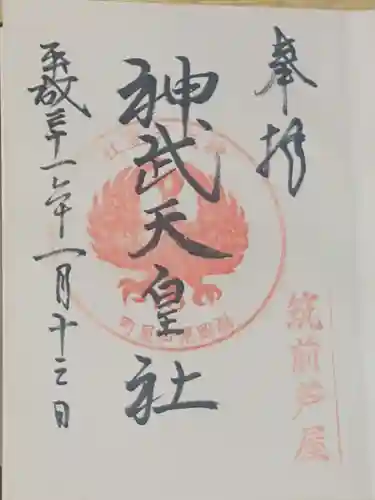 奉拝
筑前芦屋
神武天皇社
平成三十一年一月十三日